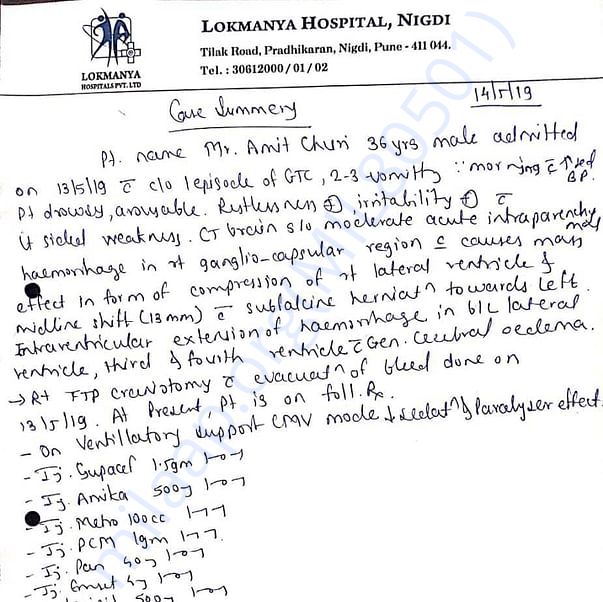 LOKMANYA HOSPITAL, NIGDI
Tilak Road, Pradhikaran, Nigdi, Pune - 411 044.
Tel. : 30612000 / 01 / 02
LOKMANYA
HOSPITALS PVT. LTD
14/5/19
Case Summery
Pt. name Mr. Amit Churi 36 yrs male admitted
on 13/5/19 c̄ c/o 1 episode of GTC, 2-3 vomitty :: morning c̄ ↑sed BP.
Pt drowsy, arousable. Restlessness ⊕, irritability ⊕ c̄
lt sided weakness. CT brain s/o moderate acute intraparenchymal
haemorrhage in rt ganglio-capsular region c̄ causes mass
effect in form of compression of rt lateral ventricle &
midline shift (13mm) c̄ subfalcine herniatn towards left.
Intraventricular extension of haemorrhage in b/L lateral
ventricle, third & fourth ventricle c̄ Gen. cerebral oedema.
→ Rt FTP craniotomy c̄ evacuatn of bleed done on
13/5/19. At Present, Pt is on foll. Rx.
- On Ventillatory support CMV mode ↓ sedatn & Paralyser effect.
- Ij. Supacef 1.5gm 1-0-1
- Ij. Amika 500 1-0-1
- Ij. Metro 100cc 1-1-1
- Ij. PCM 1gm 1-1-1.
- Ij. Pan 40 1-0-1
- Ij. Emset 4 1-0-1
500 1-0-1
milaap.org(MLP80501)